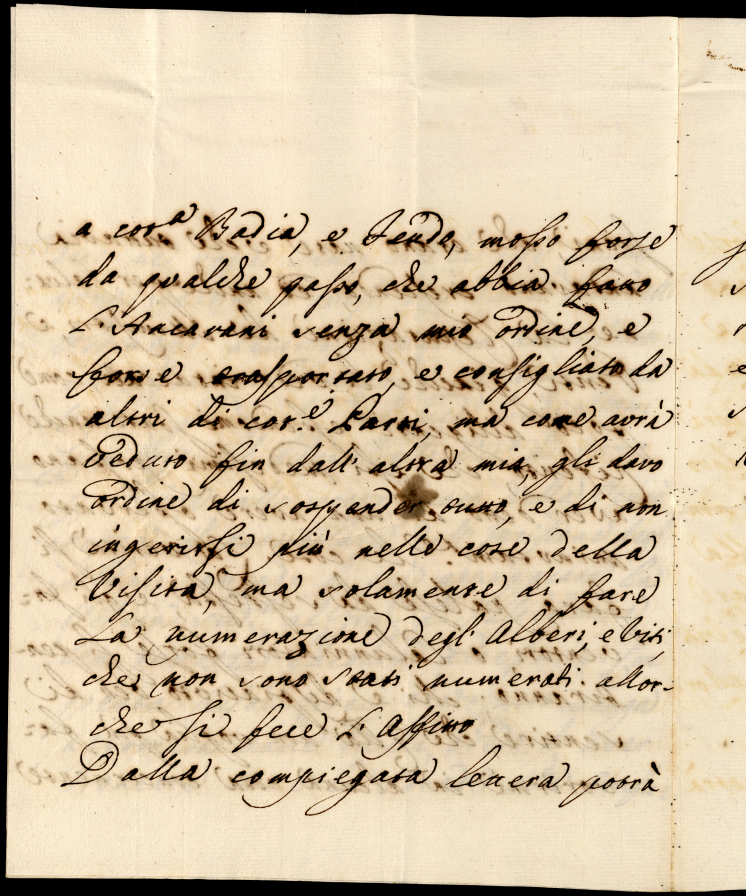 a cot.ª Badia, e Feudo, mosso forse
da qualche passo, che abbia fatto
L'Ancarani senza mio ordine, e
forse trasportato, e consigliato da
altri di cot.e Parti, ma come avrà
veduto fin dall'altra mia, gli davo
ordine di sospender tutto, e di non
ingerirsi più nelle cose della
Visita, ma solamente di fare
La numerazione degl'Alberi, e Viti,
che non sono stati numerati allor-
che si fece L'Affitto
Dalla compiegata lettera potrà